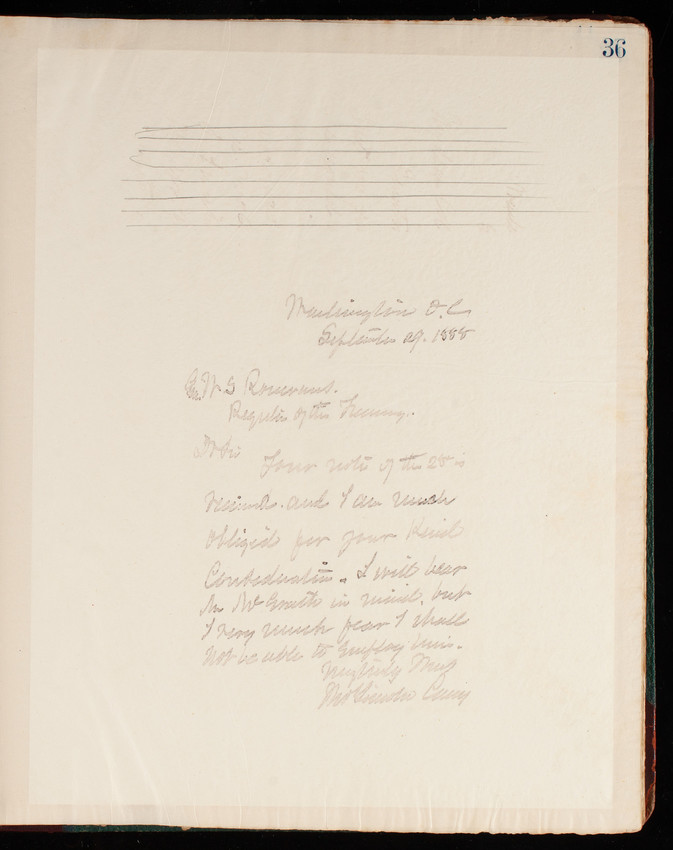 36
Washington D.C.
September 29. 1888
Gen. W S Rosecrans.
Register of the Treasury.
Dr Sir
Your note of the 28 is
received. and I am much
obliged for your kind
I will bear
Mr McGrath in mind, but
I very much fear I shall
not be able to employ him.
Very truly Yours
Thos Lincoln Casey